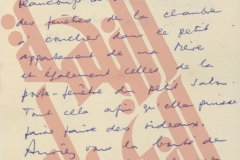 des fenêtres de la chambre
à coucher dans le petit
appartement de ma Mère
et également celles de la
porte-fenêtre du petit salon.
Tout cela afin qu'elle puisse
faire faire des rideaux.
Auriez vous la bonté de